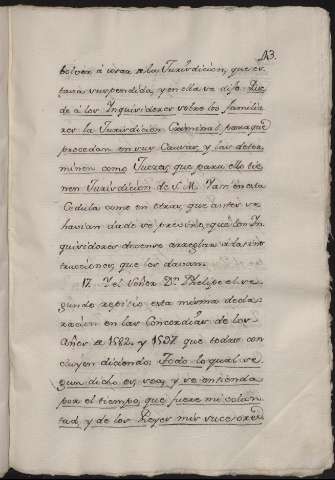 43.
bolver á usar de la Jurisdiccion, que es-
tava suspendida, y en ella se dijo: Que
de á los Inquisidores sobre los familia
res la Jurisdicion Criminal, para que
procedan en sus Causas, y las deter-
minen como Jueces, que para ello tie-
nen Jurisdicion de S. M. Y asi en esta
Cedula como en otras, que antes se
havian dado se previno, que los In-
quisidores devense arreglarse á las ins-
trucciones, que les davan.
17. Y el Señor Dn. Phelipe el se-
gundo repitio esta misma decla-
racion en las Concordias de los
Años de 1582. y 1597 que todas con
cluyen diciendo: Todo lo qual se
gun dicho es, veo, y se entienda
por el tiempo, que fuere mi volun
tad, y de los Reyes mis succesores